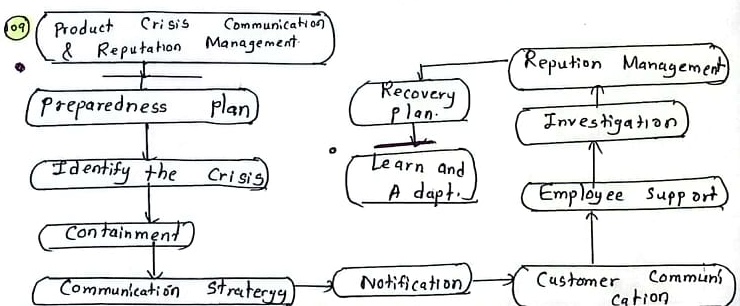 109
Product Crisis Communication
& Reputation Management.
Preparedness plan
Identify the Crisis
Containment
Communication Stratergy
Notification
Customer Communi
cation
Employee Support
Investigation
Repution Management
Recovery
plan.
Learn and
Adapt.